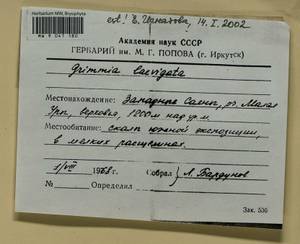 Herbarium MW, Bryophyta
MW 9 041 160
est! Е. Игнатова, 14.I.2002
Академия наук СССР
ГЕРБАРИЙ им. М. Г. ПОПОВА (г. Иркутск)
Grimmia laevigata
Местонахождение: Западные Саяны, оз. Малая
верховья, 1200 м над ур. м.
Местообитание: скалы южной экспозиции,
в мелких расщелинах.
1/VII 1968 Собрал А. Бардунов
№ Определил
Зак. 530